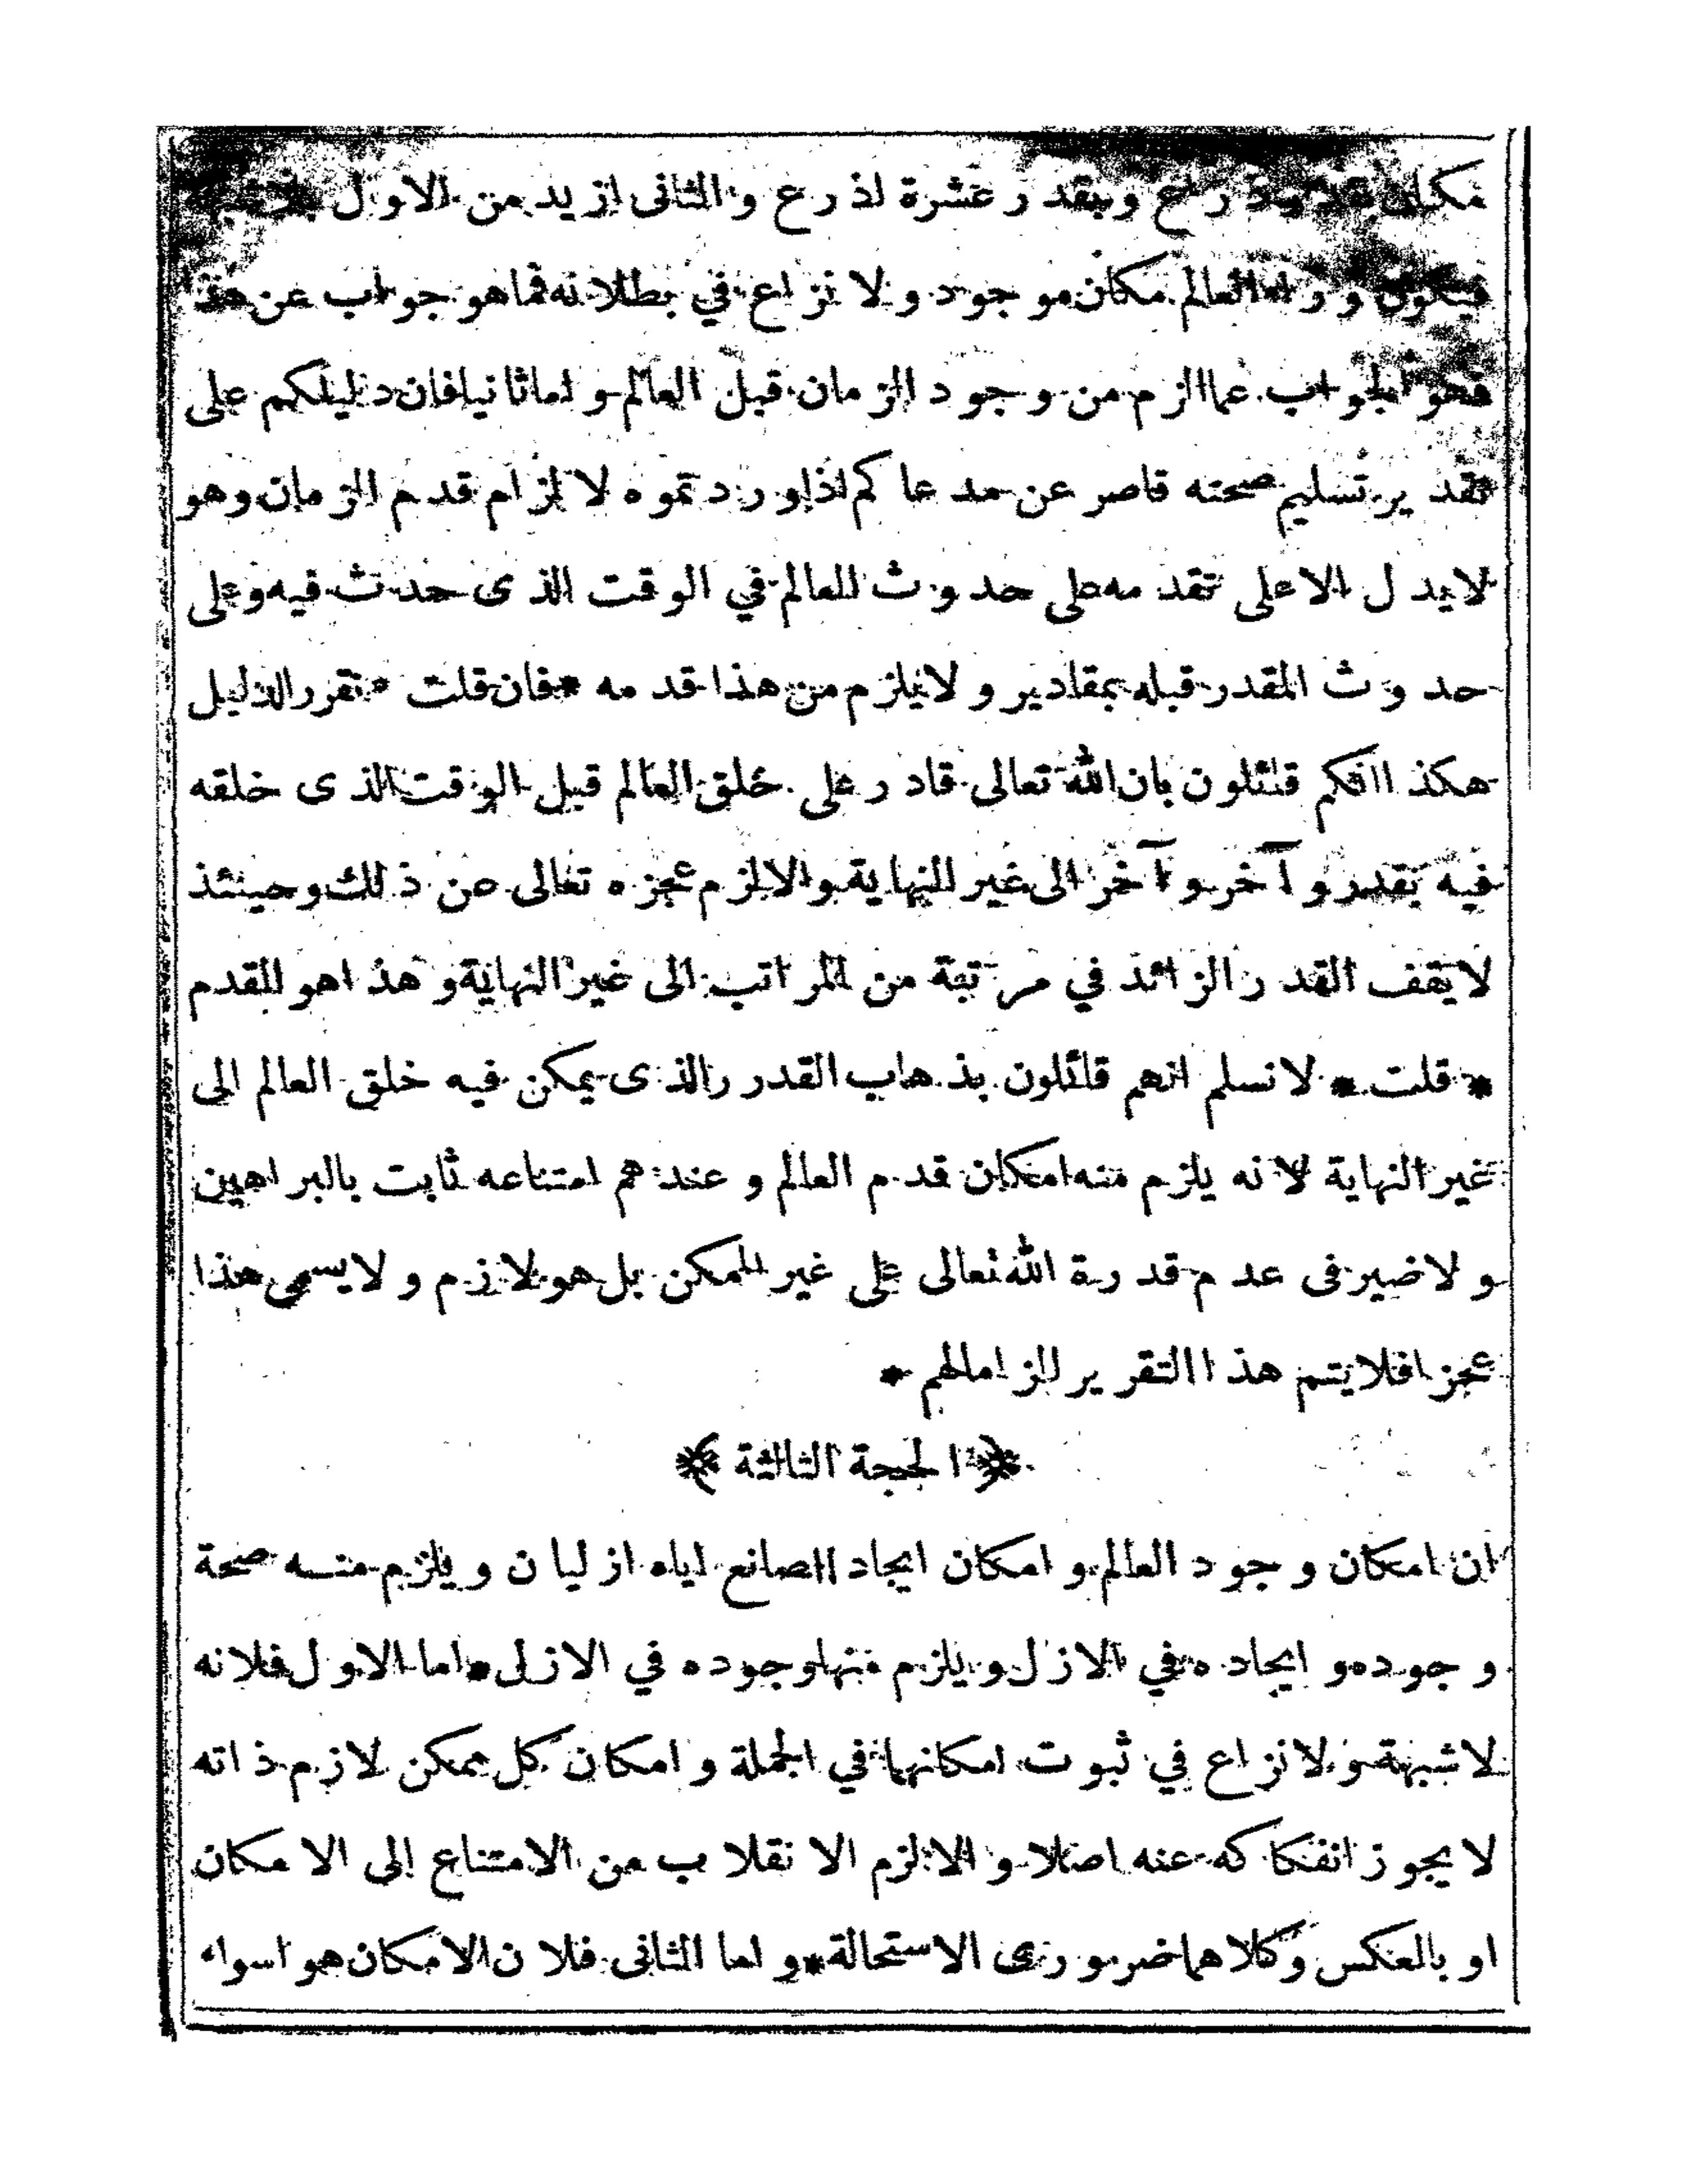 مكان بقدر ذراع وبقدر عشرة اذرع والثاني ازيد من الاول
فيكون وراء العالم مكان موجود ولا نزاع في بطلانه فما هو جواب عن هذا
فهو الجواب عما الزم من وجود الزمان قبل العالم واما ثانيا فان دليلكم على
تقدير تسليم صحته قاصر عن مدعاكم اذ اوردتموه لالزام قدم الزمان وهو
لا يدل الا على تقدمه على حدوث العالم في الوقت الذى حدث فيه وعلى
حدوث المقدر قبله بمقادير ولا يلزم من هذا قدمه * فان قلت * نقرر الدليل
هكذا انكم قائلون بان الله تعالى قادر على خلق العالم قبل الوقت الذى خلقه
فيه بقدر وآخر وآخر الى غير النهاية والا لزم عجزه تعالى عن ذلك وحينئذ
لا يقف القدر الزائد في مرتبة من المراتب الى غير النهاية وهذا هو القدم
* قلت * لا نسلم انهم قائلون بذهاب القدر الذى يمكن فيه خلق العالم الى
غير النهاية لانه يلزم منه امكان قدم العالم وعندهم امتناعه ثابت بالبراهين
ولا ضير فى عدم قدرة الله تعالى على غير الممكن بل هو لازم ولا يسمى هذا
عجزا فلا يتم هذا التقرير الزاما لهم *
﴿ الحجة الثالثة ﴾
ان امكان وجود العالم وامكان ايجاد الصانع اياه ازليان ويلزم منه صحة
وجوده وايجاده في الازل ويلزم منها وجوده في الازل * اما الاول فلانه
لا شبهة ولا نزاع في ثبوت امكانهما في الجملة وامكان كل ممكن لازم ذاته
لا يجوز انفكاكه عنه اصلا والا لزم الانقلاب من الامتناع الى الامكان
او بالعكس وكلاهما ضرورى الاستحالة * واما الثانى فلان الامكان هو اسواء